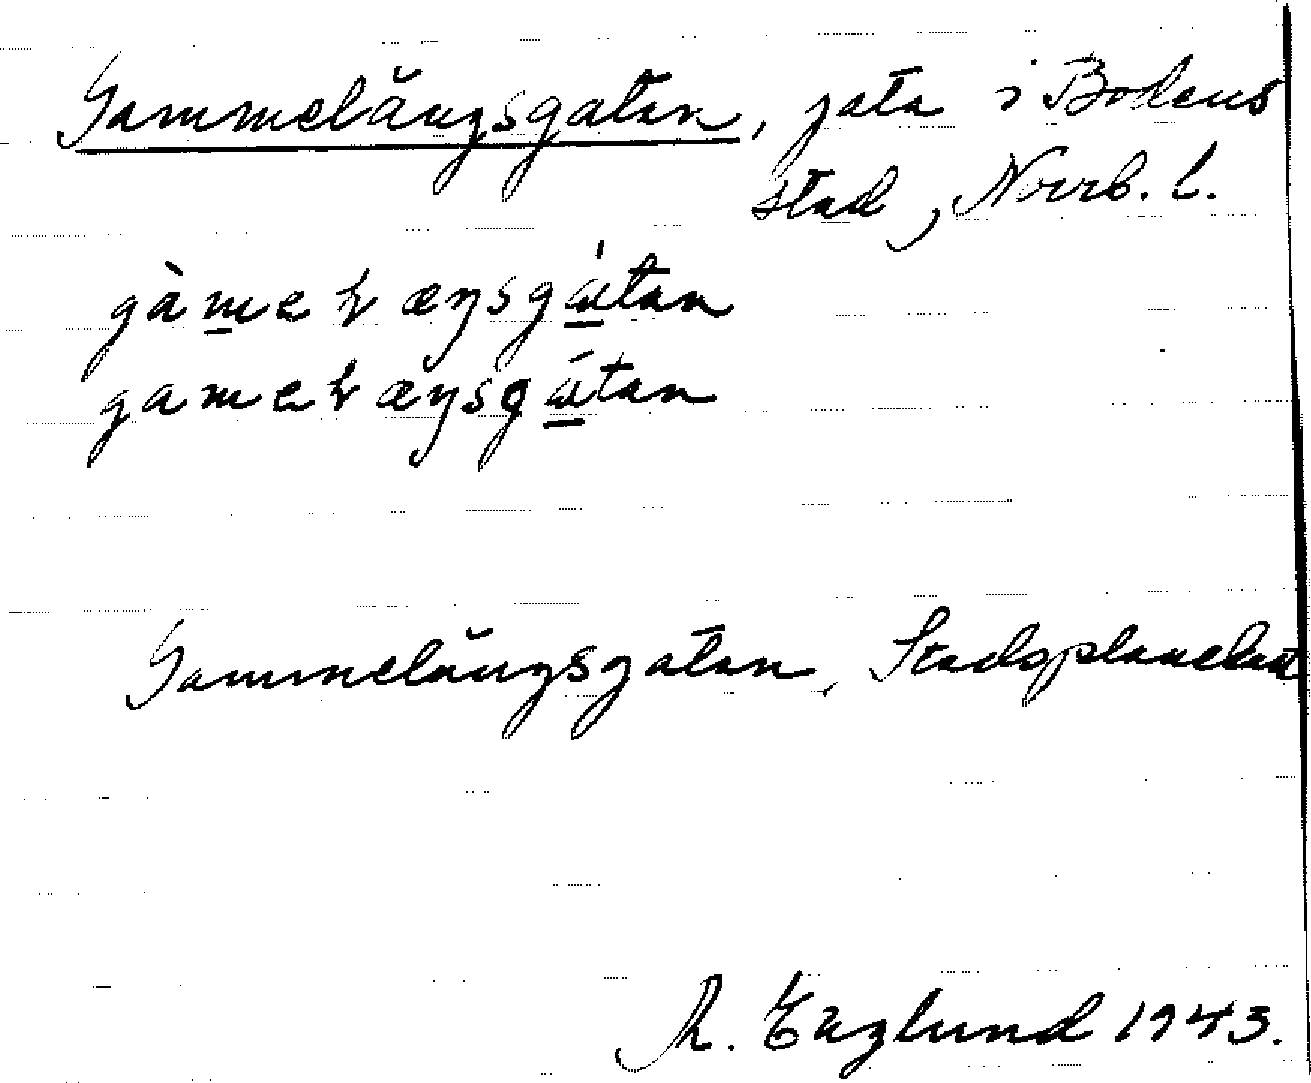 Gammelängsgatan, gata i Bodens
stad, Norrb. l.
gàmeɫæŋsgátan
gameɫæŋsgátan
Gammelängsgatan, Stadsplanekat
R. Englund 1943.